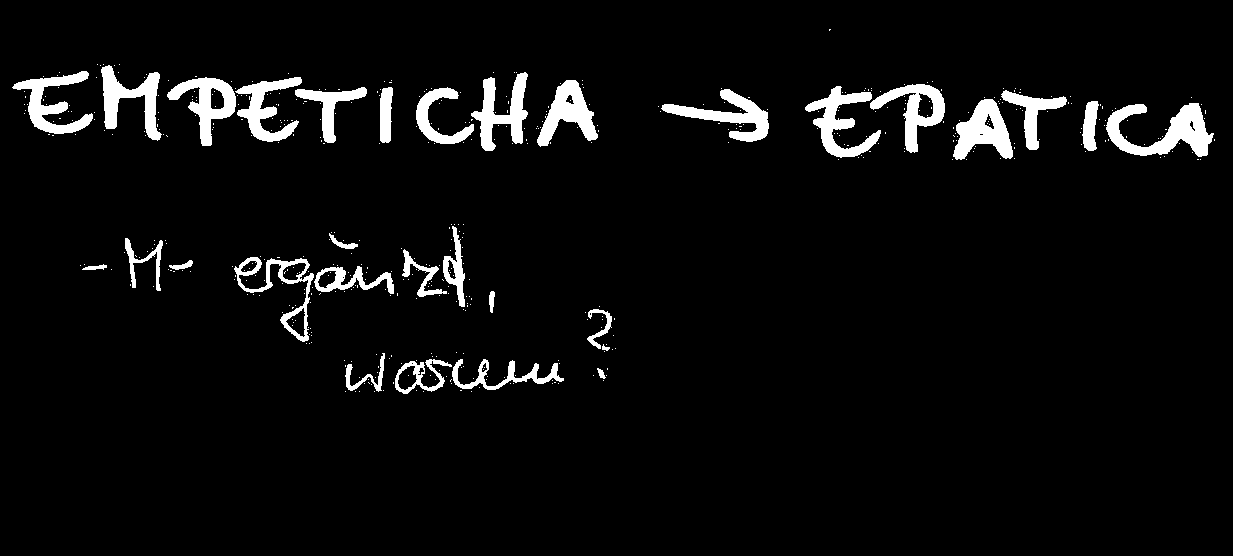 EMPETICHA → EPATICA
-M- ergänzt,
warum?